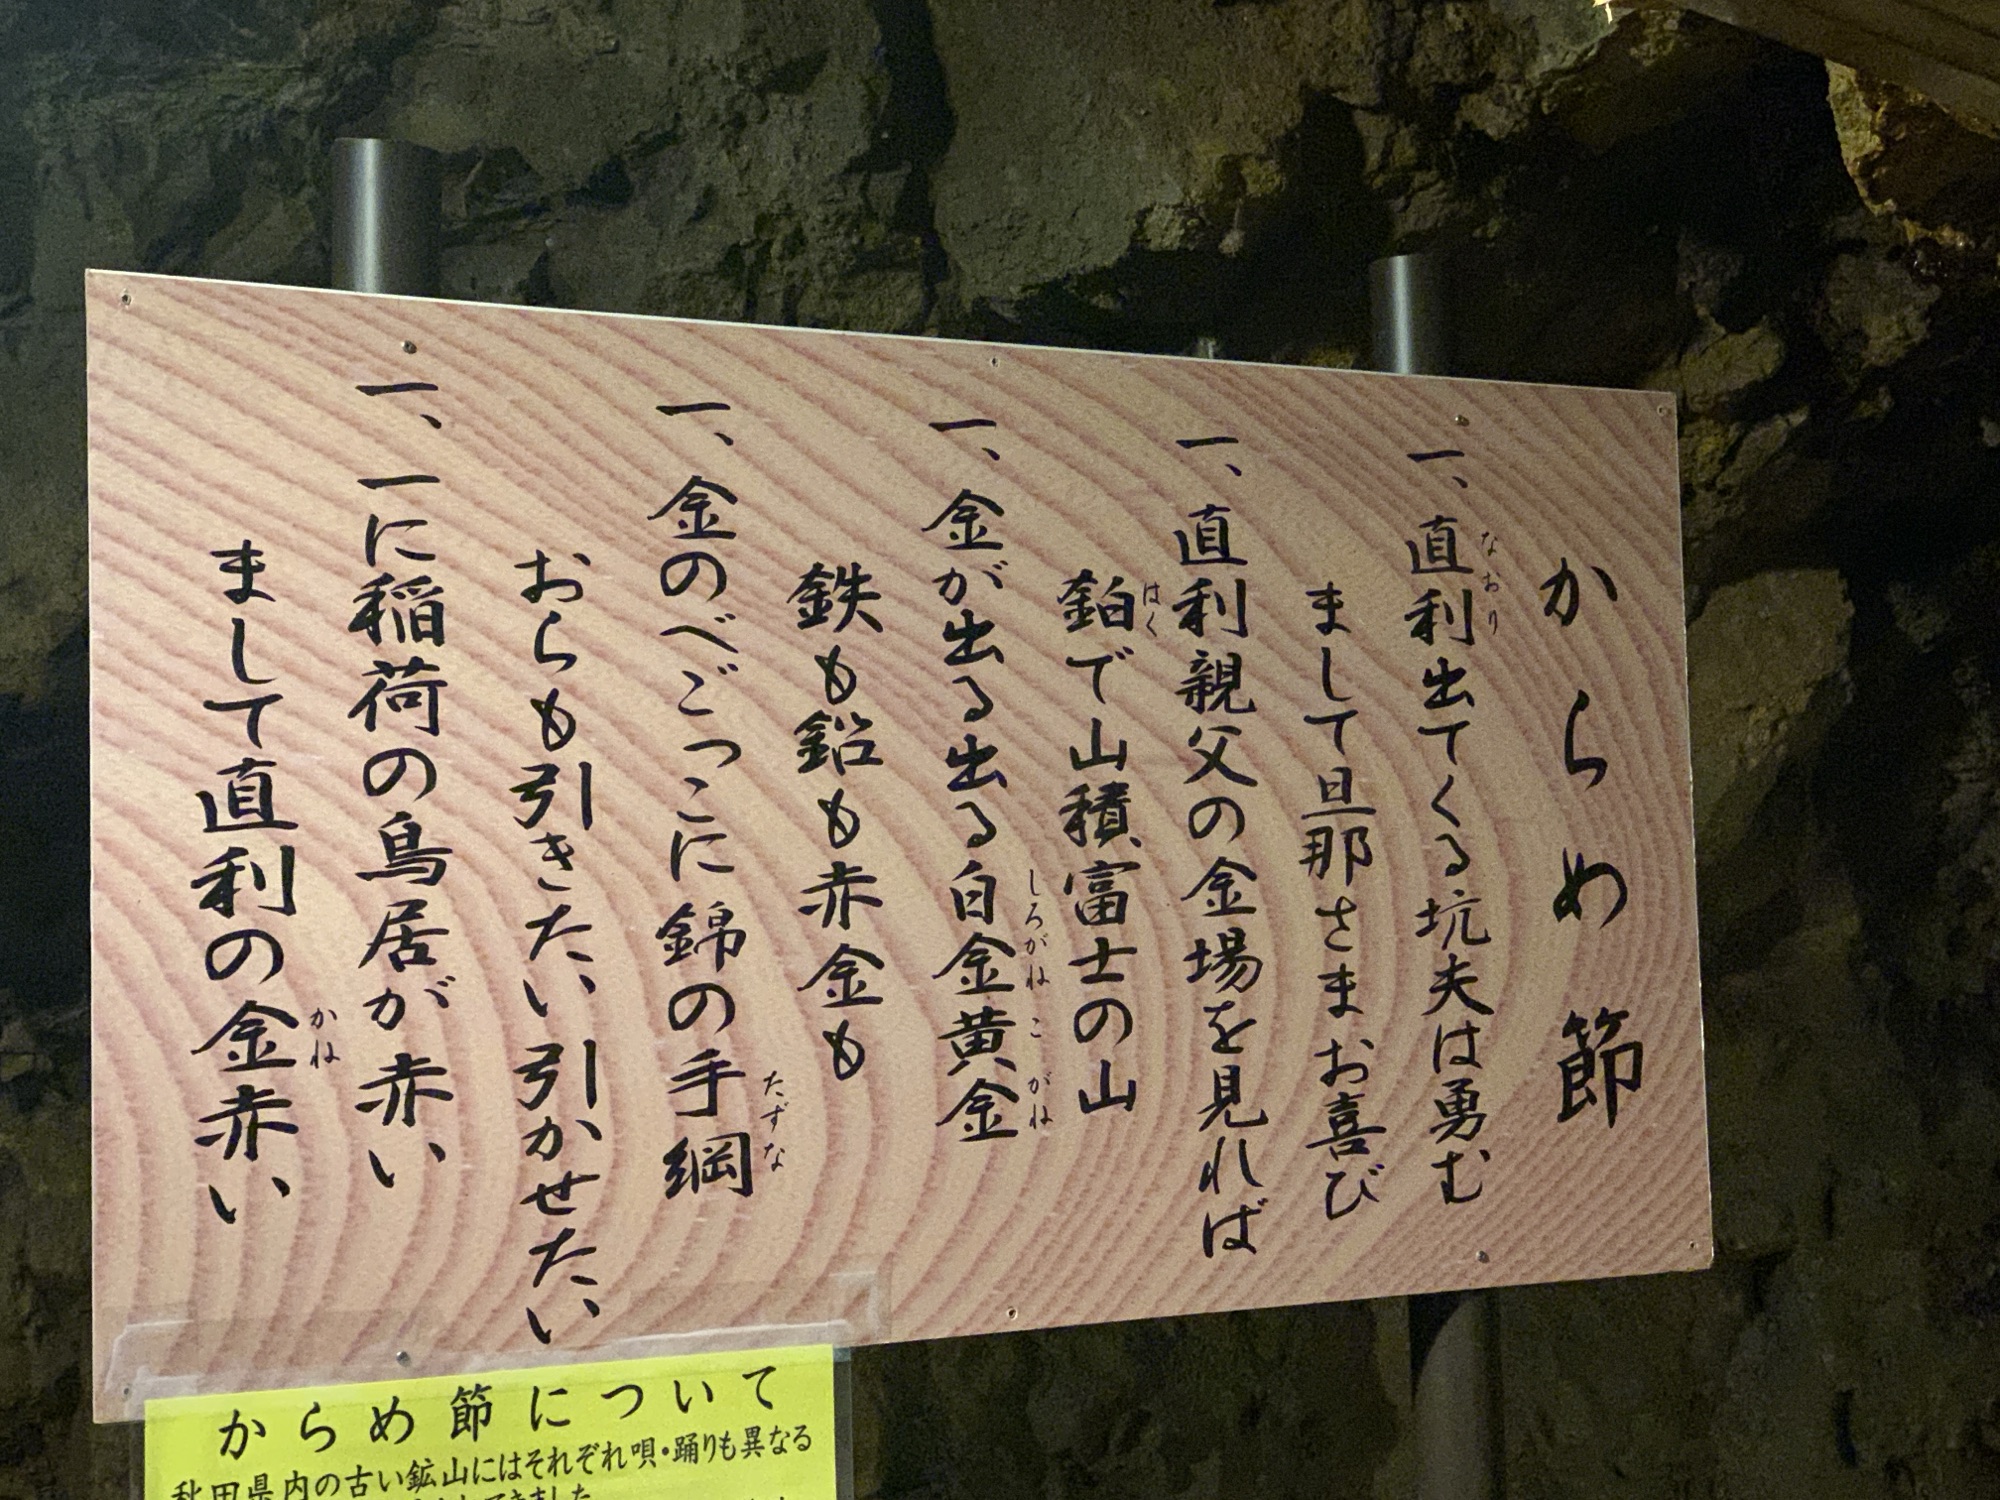 からめ節
一、直利出てくる坑夫は勇む
なおり
まして旦那さまお喜び
一、直利親父の金場を見れば
鉑で山積、富士の山
はく
一、金が出る出る白金黄金
しろがね こがね
鉄も鉛も赤金も
一、金のべごっこに錦の手綱
たずな
おらも引きたい引かせたい
一、一に稲荷の鳥居が赤い
まして直利の金赤い
かね
からめ節について
秋田県内の古い鉱山にはそれぞれ唄・踊りも異なる